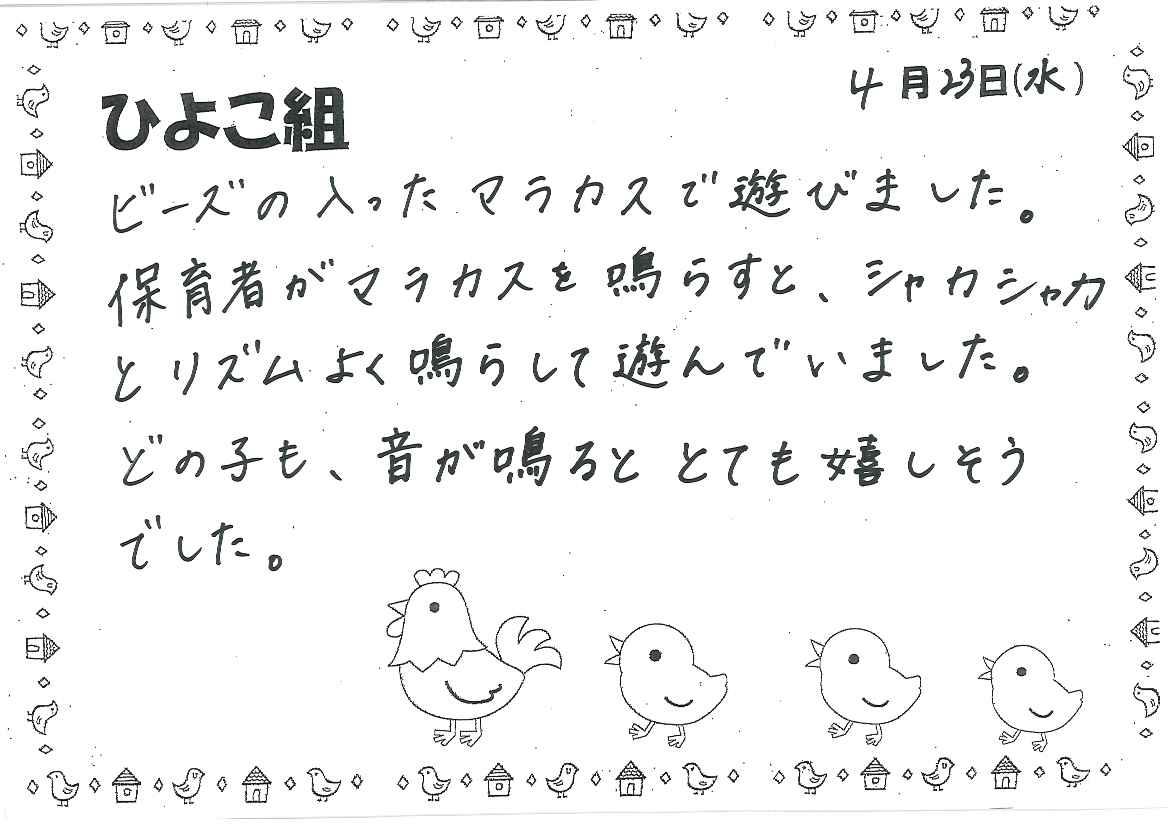 4月23日(水)
ひよこ組
ビーズの入ったマラカスで遊びました。
保育者がマラカスを鳴らすと、シャカシャカ
とリズムよく鳴らして遊んでいました。
どの子も、音が鳴るととても嬉しそう
でした。